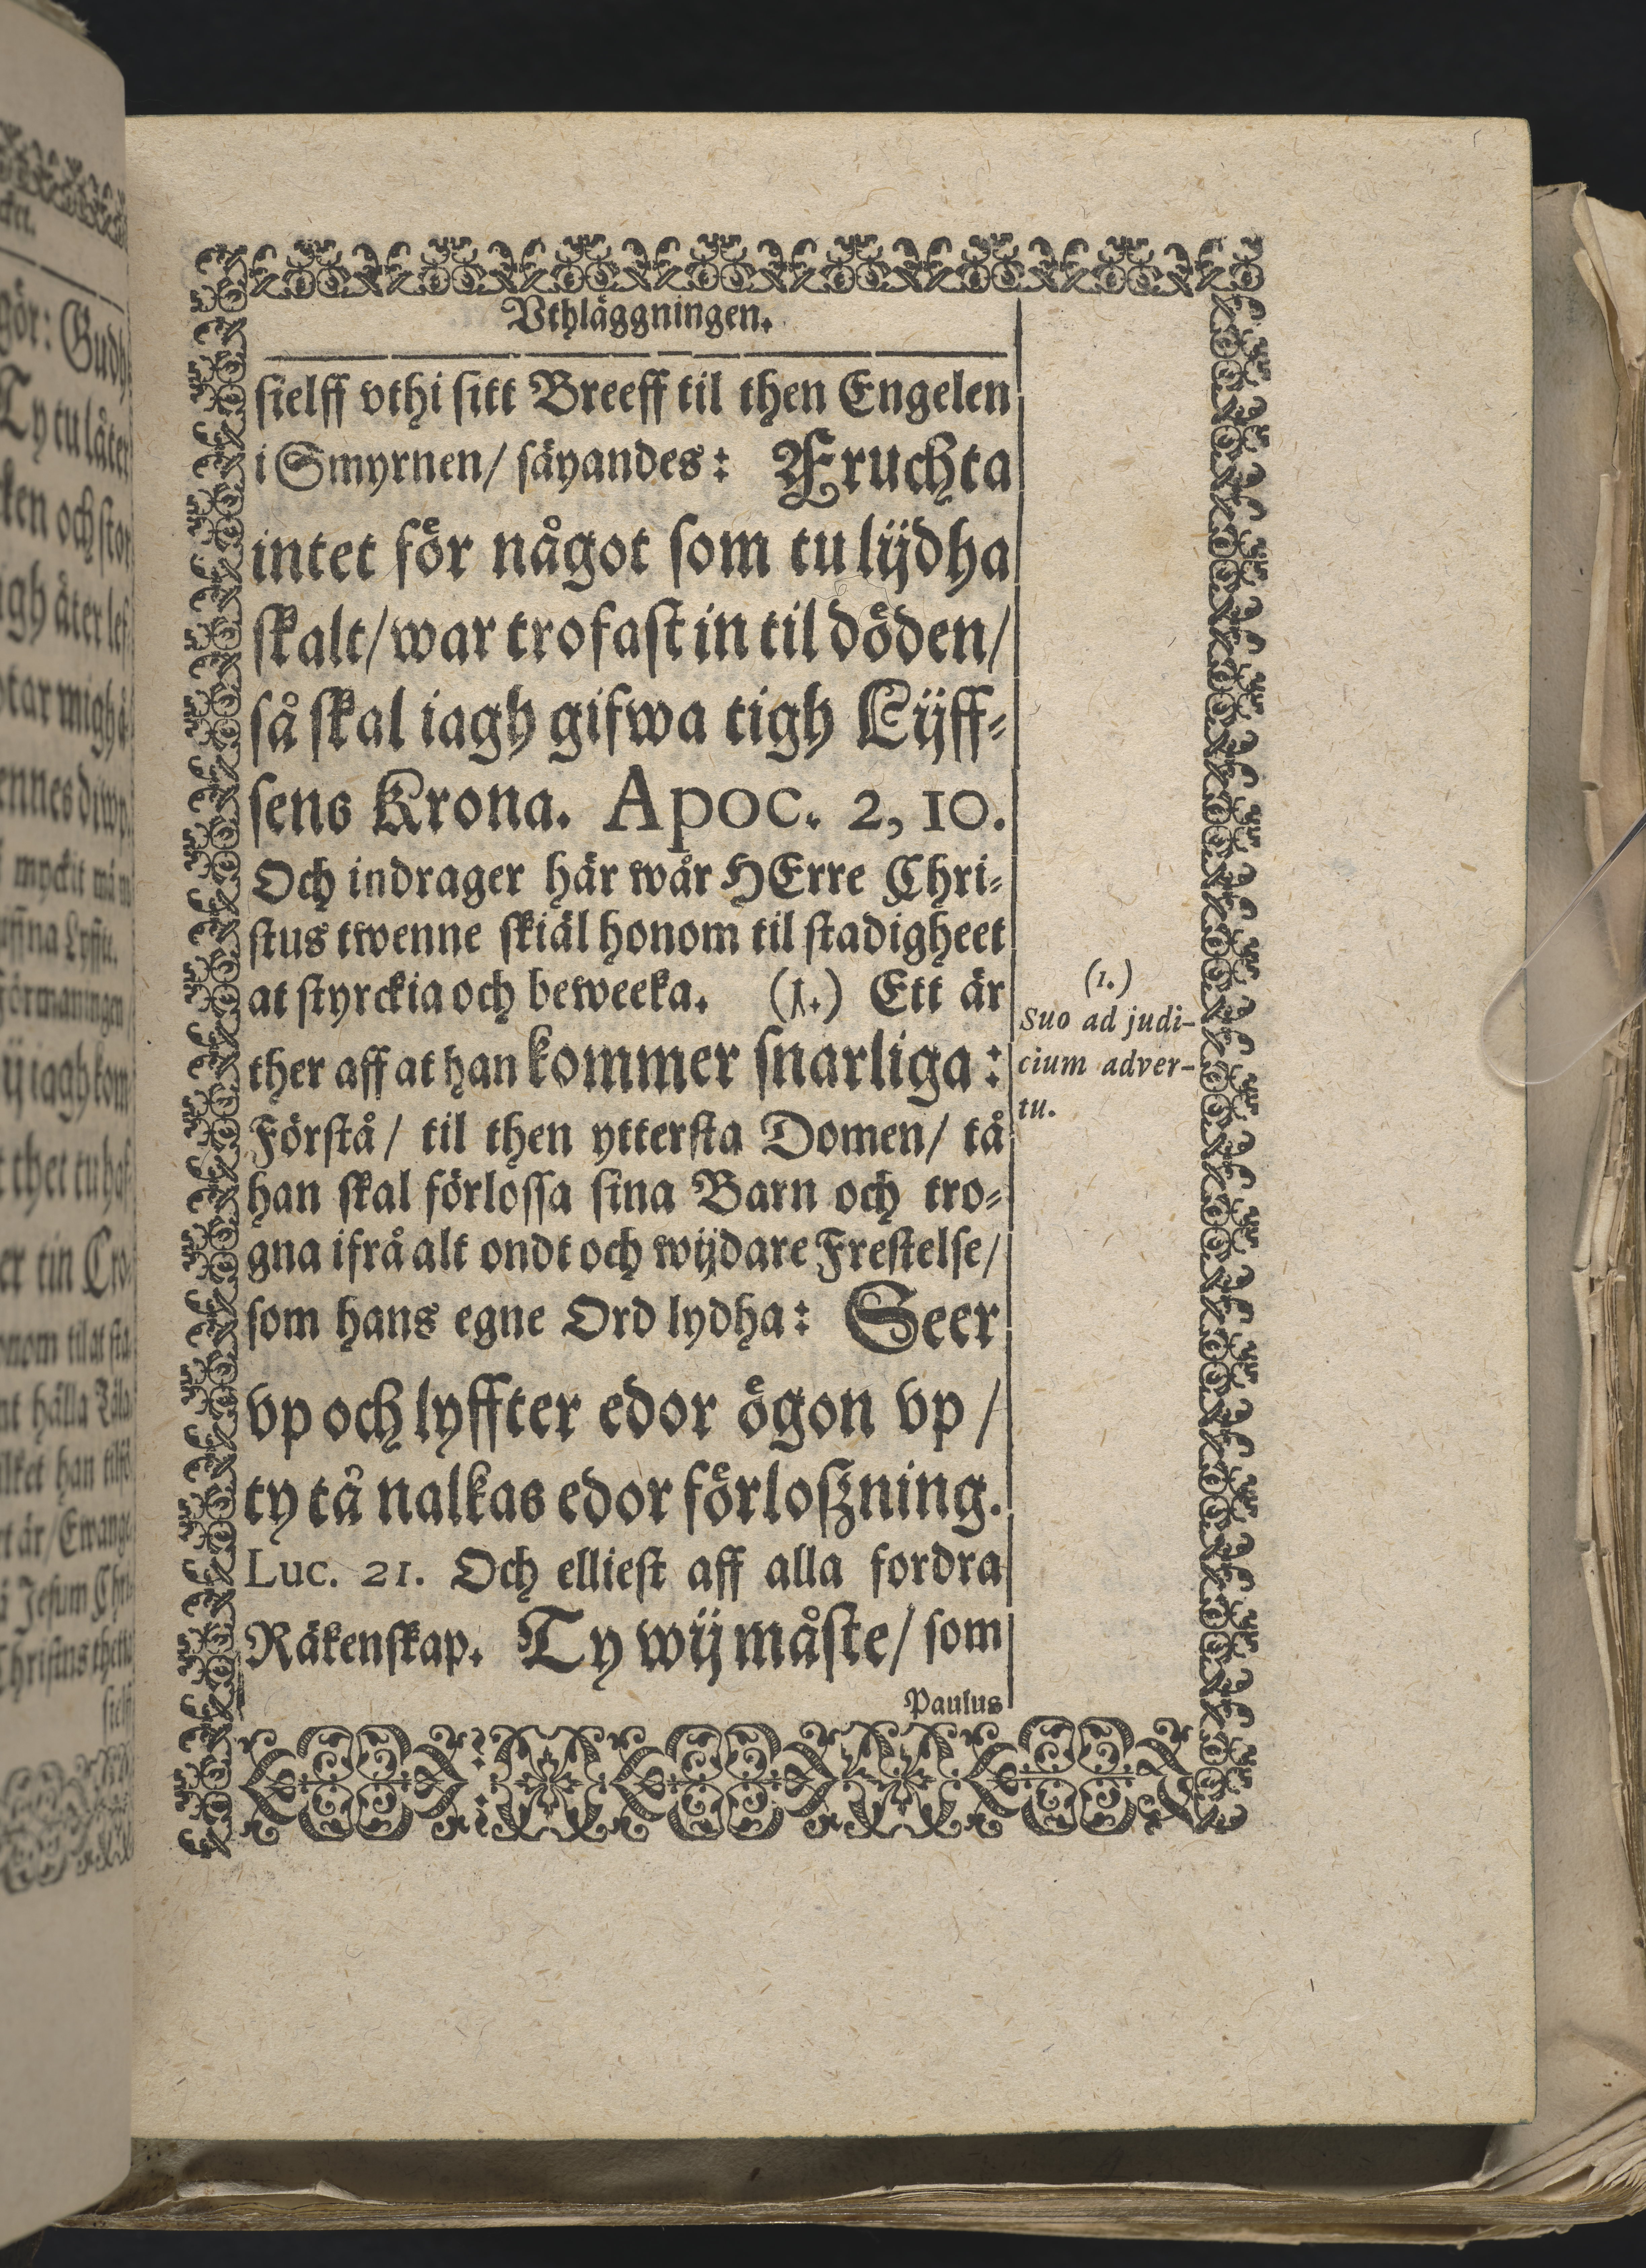 Vthläggningen.
sielff vthi sitt Breeff til then Engelen
i Smyrnen/ säyandes: Fruchta
intet för något som tu lijdha
skalt/ war trofast in til döden/
så skal iagh gifwa tigh Lijff-
sens Krona. Apoc. 2, 10.
Och indrager här wår HErre Chri-
stus twenne skiäl honom til stadigheet
at styrckia och beweeka. (1.) Ett är
ther aff at han kommer snarliga:
Förstå/ til then yttersta Domen/ tå
han skal förlossa sina Barn och tro-
gna ifrå alt ondt och wijdare Frestelse/
som hans egne Ord lydha: Seer
vp och lyffter edor ögon vp/
ty tå nalkas edor förloszning.
Luc. 21. Och elliest aff alla fordra
Räkenskap. Ty wij måste/ som
Paulus
(1.)
Suo ad judi-
cium adver-
tu.
gör: Gudh
Ty tu låter